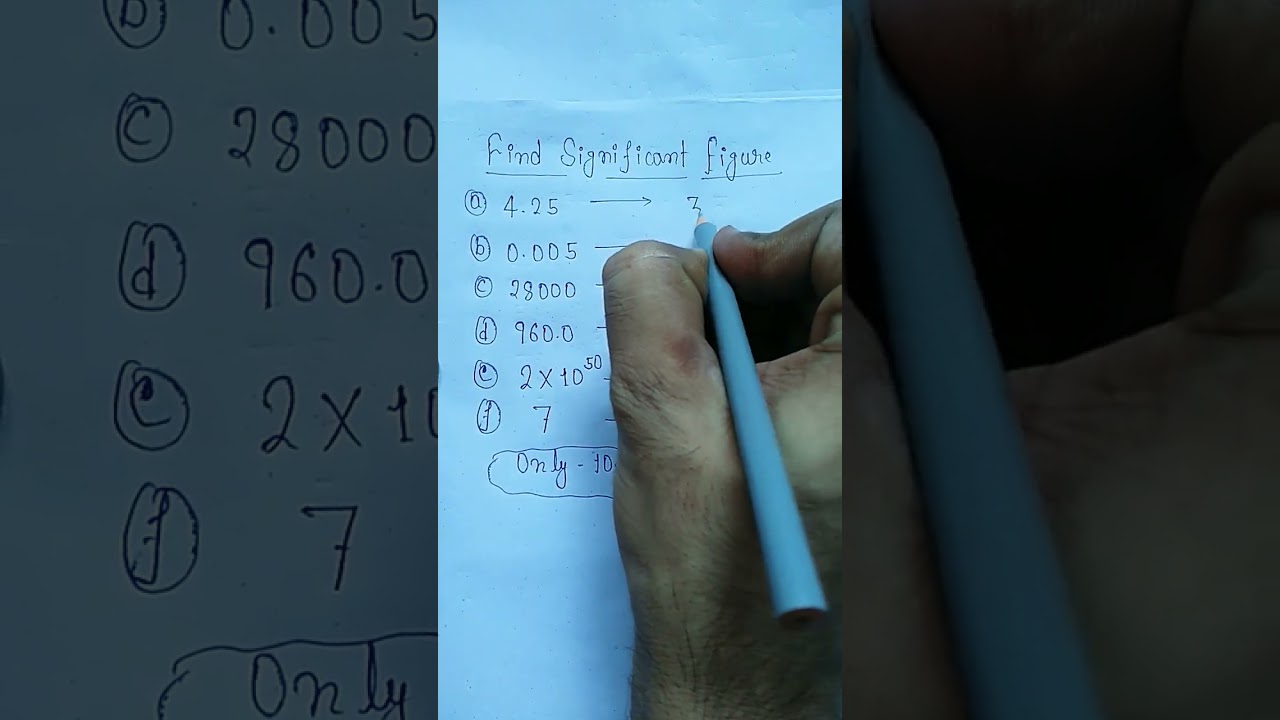 Find Significant figure
(a) 4.25 → 3
(b) 0.005
(c) 28000
(d) 960.0
(e) 2×10⁵⁰
(f) 7
Only - 10